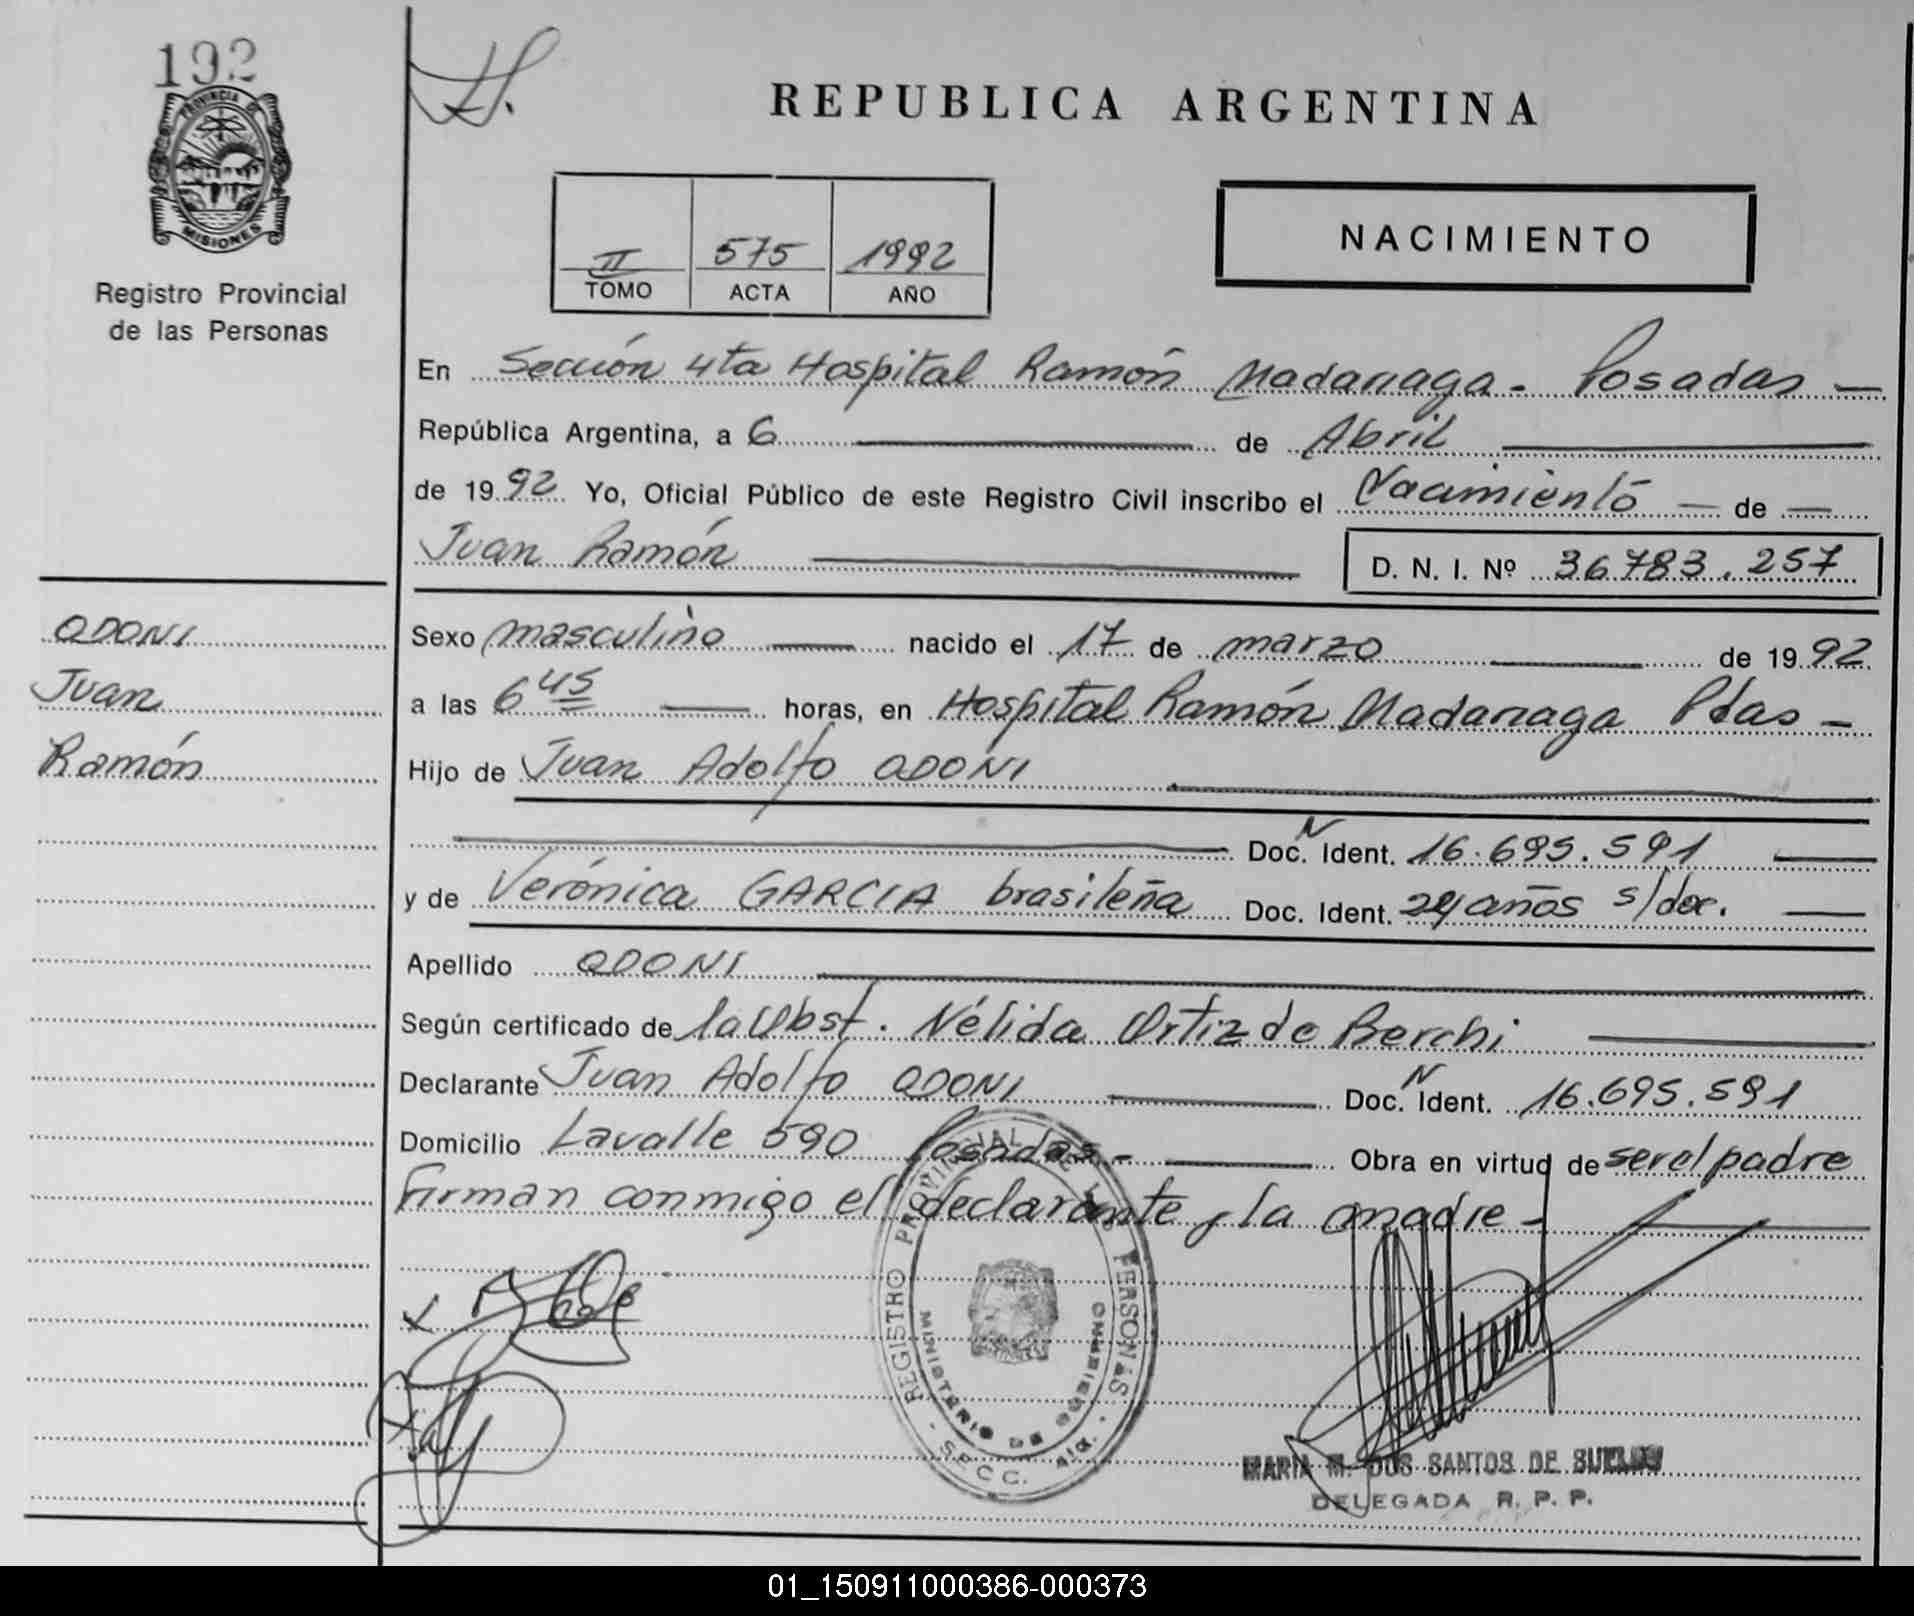 192
PROVINCIA DE
MISIONES
Registro Provincial
de las Personas
REPUBLICA ARGENTINA
II 575 1992
TOMO ACTA AÑO
NACIMIENTO
En Sección 4ta Hospital Ramón Madariaga - Posadas -
República Argentina, a 6 de Abril
de 1992 Yo, Oficial Público de este Registro Civil inscribo el Nacimiento de
Juan Ramón D. N. I. Nº 36.783.257
ODONI
Juan
Ramón
Sexo masculino nacido el 17 de marzo de 1992
a las 6 45 horas, en Hospital Ramón Madariaga Pdas -
Hijo de Juan Adolfo ODONI
Doc. N Ident. 16.695.591
y de Verónica GARCIA brasileña Doc. Ident. 24 años s/doc.
Apellido ODONI
Según certificado de la Obst. Nélida Ortiz de Berchi
Declarante Juan Adolfo ODONI Doc. N Ident. 16.695.591
Domicilio Lavalle 590 Posadas - Obra en virtud de ser el padre
Firman conmigo el declarante y la madre -
REGISTRO PROVINCIAL DE LAS PERSONAS
MINISTERIO DE GOBIERNO
MARIA M. DOS SANTOS DE
DELEGADA R. P. P.
01_150911000386-000373